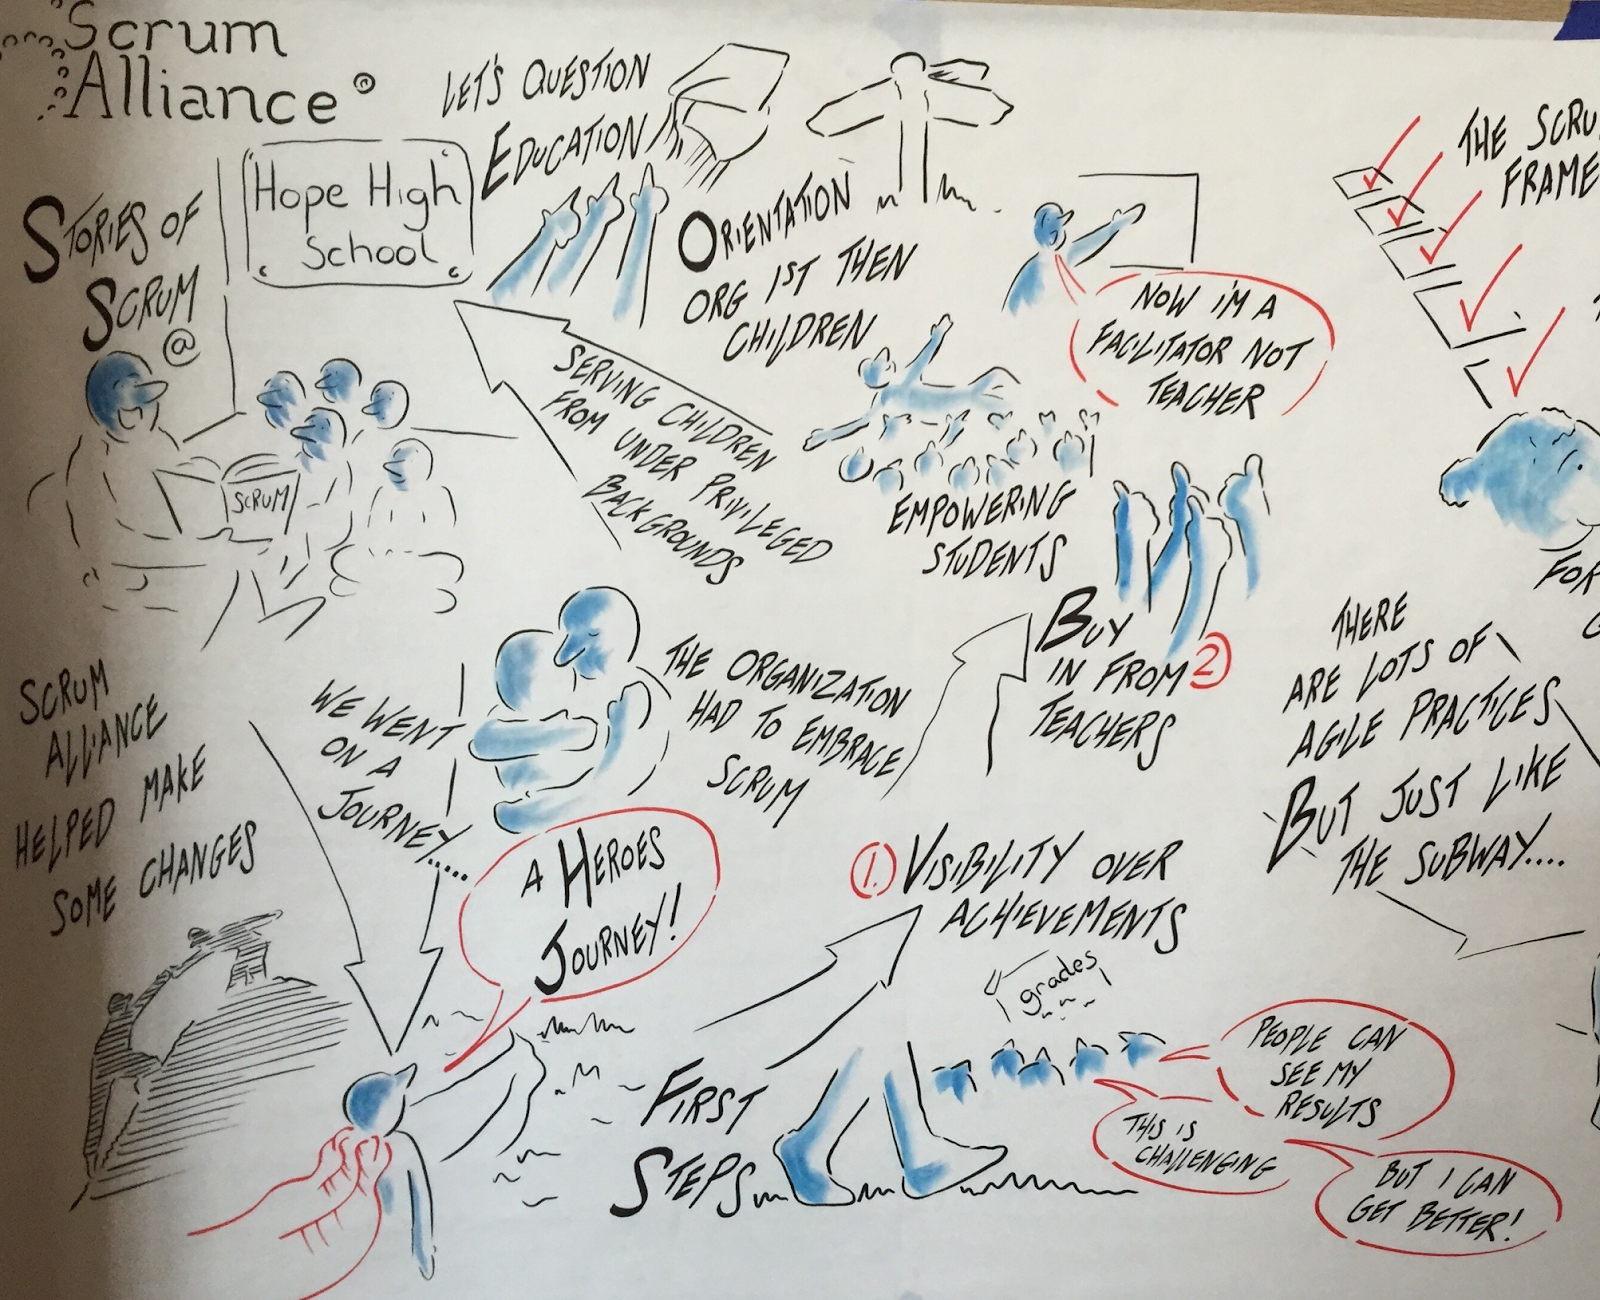 Scrum
Alliance ®
STORIES OF
SCRUM
@
Hope High
School
SCRUM
LET'S QUESTION
EDUCATION
ORIENTATION
ORG 1ST THEN
CHILDREN
SERVING CHILDREN
FROM UNDER PRIVILEGED
BACKGROUNDS
NOW I'M A
FACILITATOR NOT
TEACHER
EMPOWERING
STUDENTS
SCRUM
ALLIANCE
HELPED MAKE
SOME CHANGES
WE WENT
ON A
JOURNEY.....
A HEROES
JOURNEY!
THE ORGANIZATION
HAD TO EMBRACE
SCRUM
FIRST
STEPS
1. VISIBILITY OVER
ACHIEVEMENTS
grades
PEOPLE CAN
SEE MY
RESULTS
THIS IS
CHALLENGING
BUT I CAN
GET BETTER!
BUY
IN FROM 2
TEACHERS
THE SCRU
FRAME
FOR
THERE
ARE LOTS OF
AGILE PRACTICES
BUT JUST LIKE
THE SUBWAY....